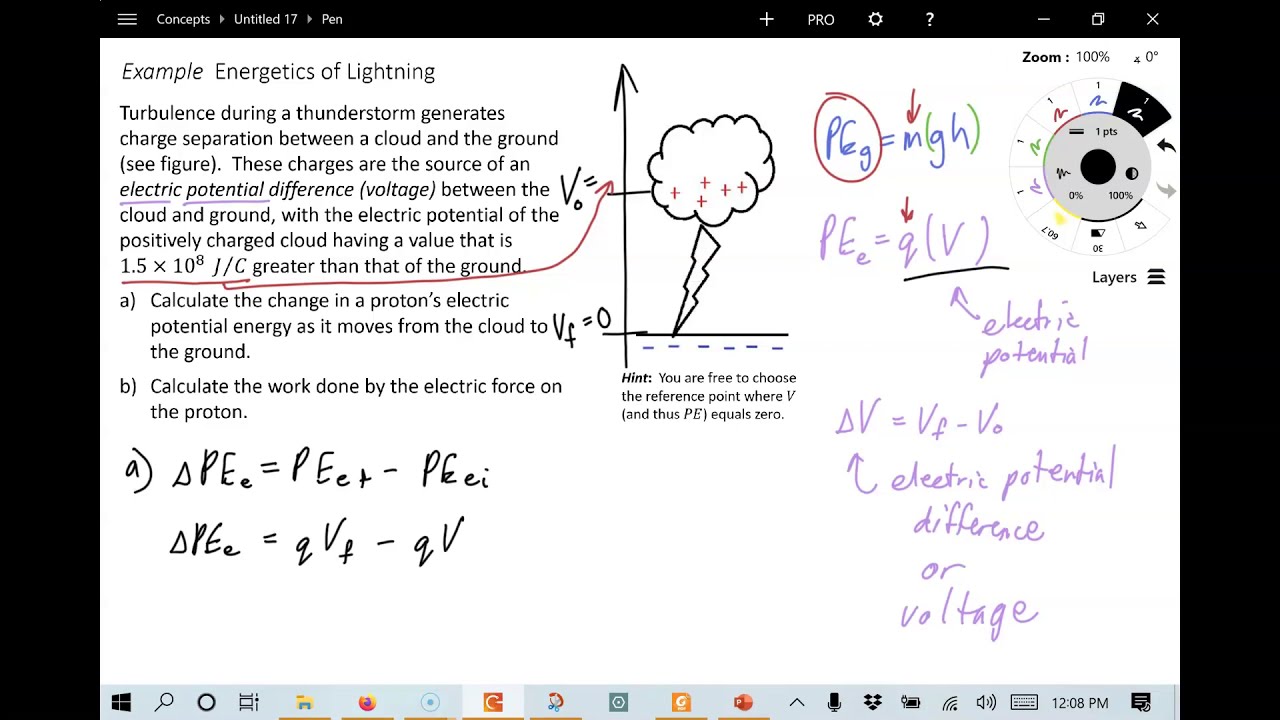 Concepts ▸ Untitled 17 ▸ Pen
PRO
?
Example Energetics of Lightning
Turbulence during a thunderstorm generates
charge separation between a cloud and the ground
(see figure). These charges are the source of an
electric potential difference (voltage) between the
cloud and ground, with the electric potential of the
positively charged cloud having a value that is
1.5 × 10⁸ J/C greater than that of the ground.
a) Calculate the change in a proton's electric
potential energy as it moves from the cloud to
the ground.
b) Calculate the work done by the electric force on
the proton.
V₀ =
V_f = 0
+ + + + +
− − − − − − −
Hint: You are free to choose
the reference point where V
(and thus PE) equals zero.
a) ΔPE_e = PE_ef − PE_ei
ΔPE_e = qV_f − qV
PE_g = m(gh)
PE_e = q(V)
electric
potential
ΔV = V_f − V₀
electric potential
difference
or
voltage
Zoom : 100% ∡ 0°
1
1
1
1
1
1 pts
0% 100%
60.7
30
Layers
12:08 PM